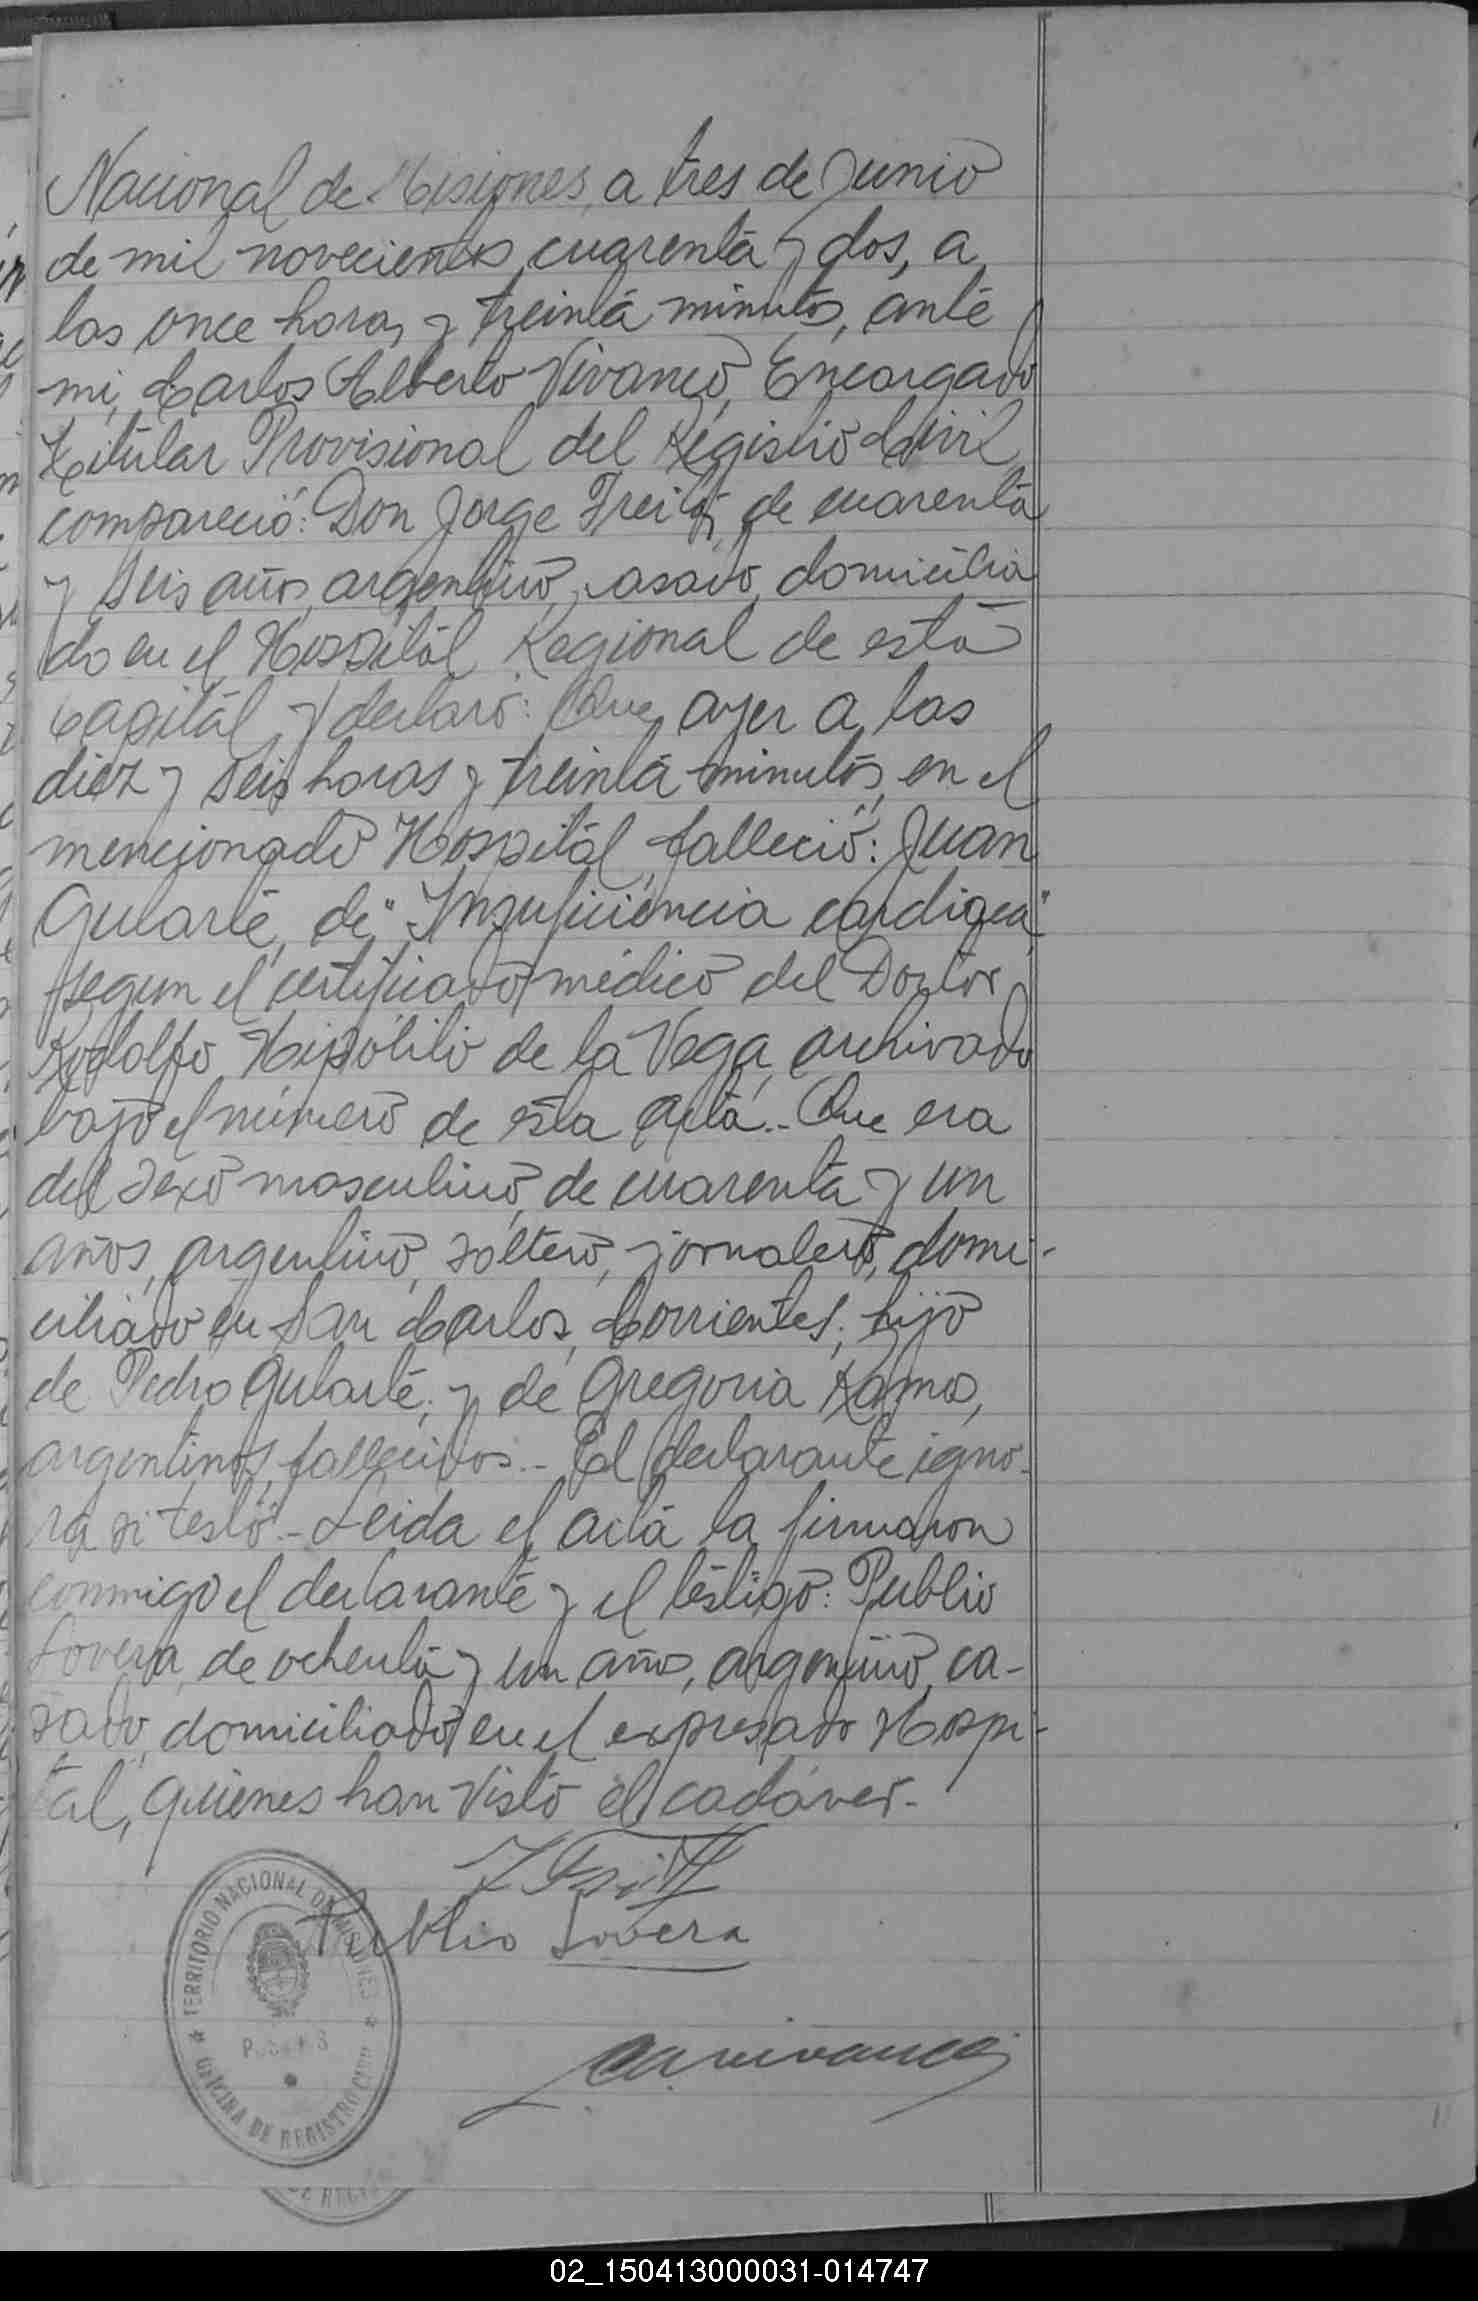 Nacional de Misiones, a tres de Junio
de mil novecientos cuarenta y dos, a
las once horas y treinta minutos, ante
mi, Carlos Alberto Vivanco, Encargado
Titular Provisional del Registro Civil
compareció: Don Jorge de cuarenta
y seis años, argentino, casado, domicilia
do en el Hospital Regional de esta
Capital y declaró: Que ayer a las
diez y seis horas y treinta minutos, en el
mencionado Hospital, falleció: Juan
Gularte, de "Insuficiencia cardiaca"
segun el certificado médico del Doctor
Rodolfo Hipólito de la Vega, archivado
bajo el número de esta acta.- Que era
del sexo masculino, de cuarenta y un
años, argentino, soltero, jornalero, domi-
ciliado en San Carlos, Corrientes; hijo
de Pedro Gularte; y de Gregoria Ramos,
argentinos, fallecidos.- El declarante igno-
ra si testó.- Leida el acta la firmaron
conmigo el declarante y el testigo: Publio
Lovera, de ochenta y un años, argentino, ca-
sado, domiciliado en el expresado Hospi-
tal, quienes han visto el cadáver.-
Publio Lovera
TERRITORIO NACIONAL DE MISIONES
OFICINA DE REGISTRO CIVIL
DE REGIS
02_150413000031-014747